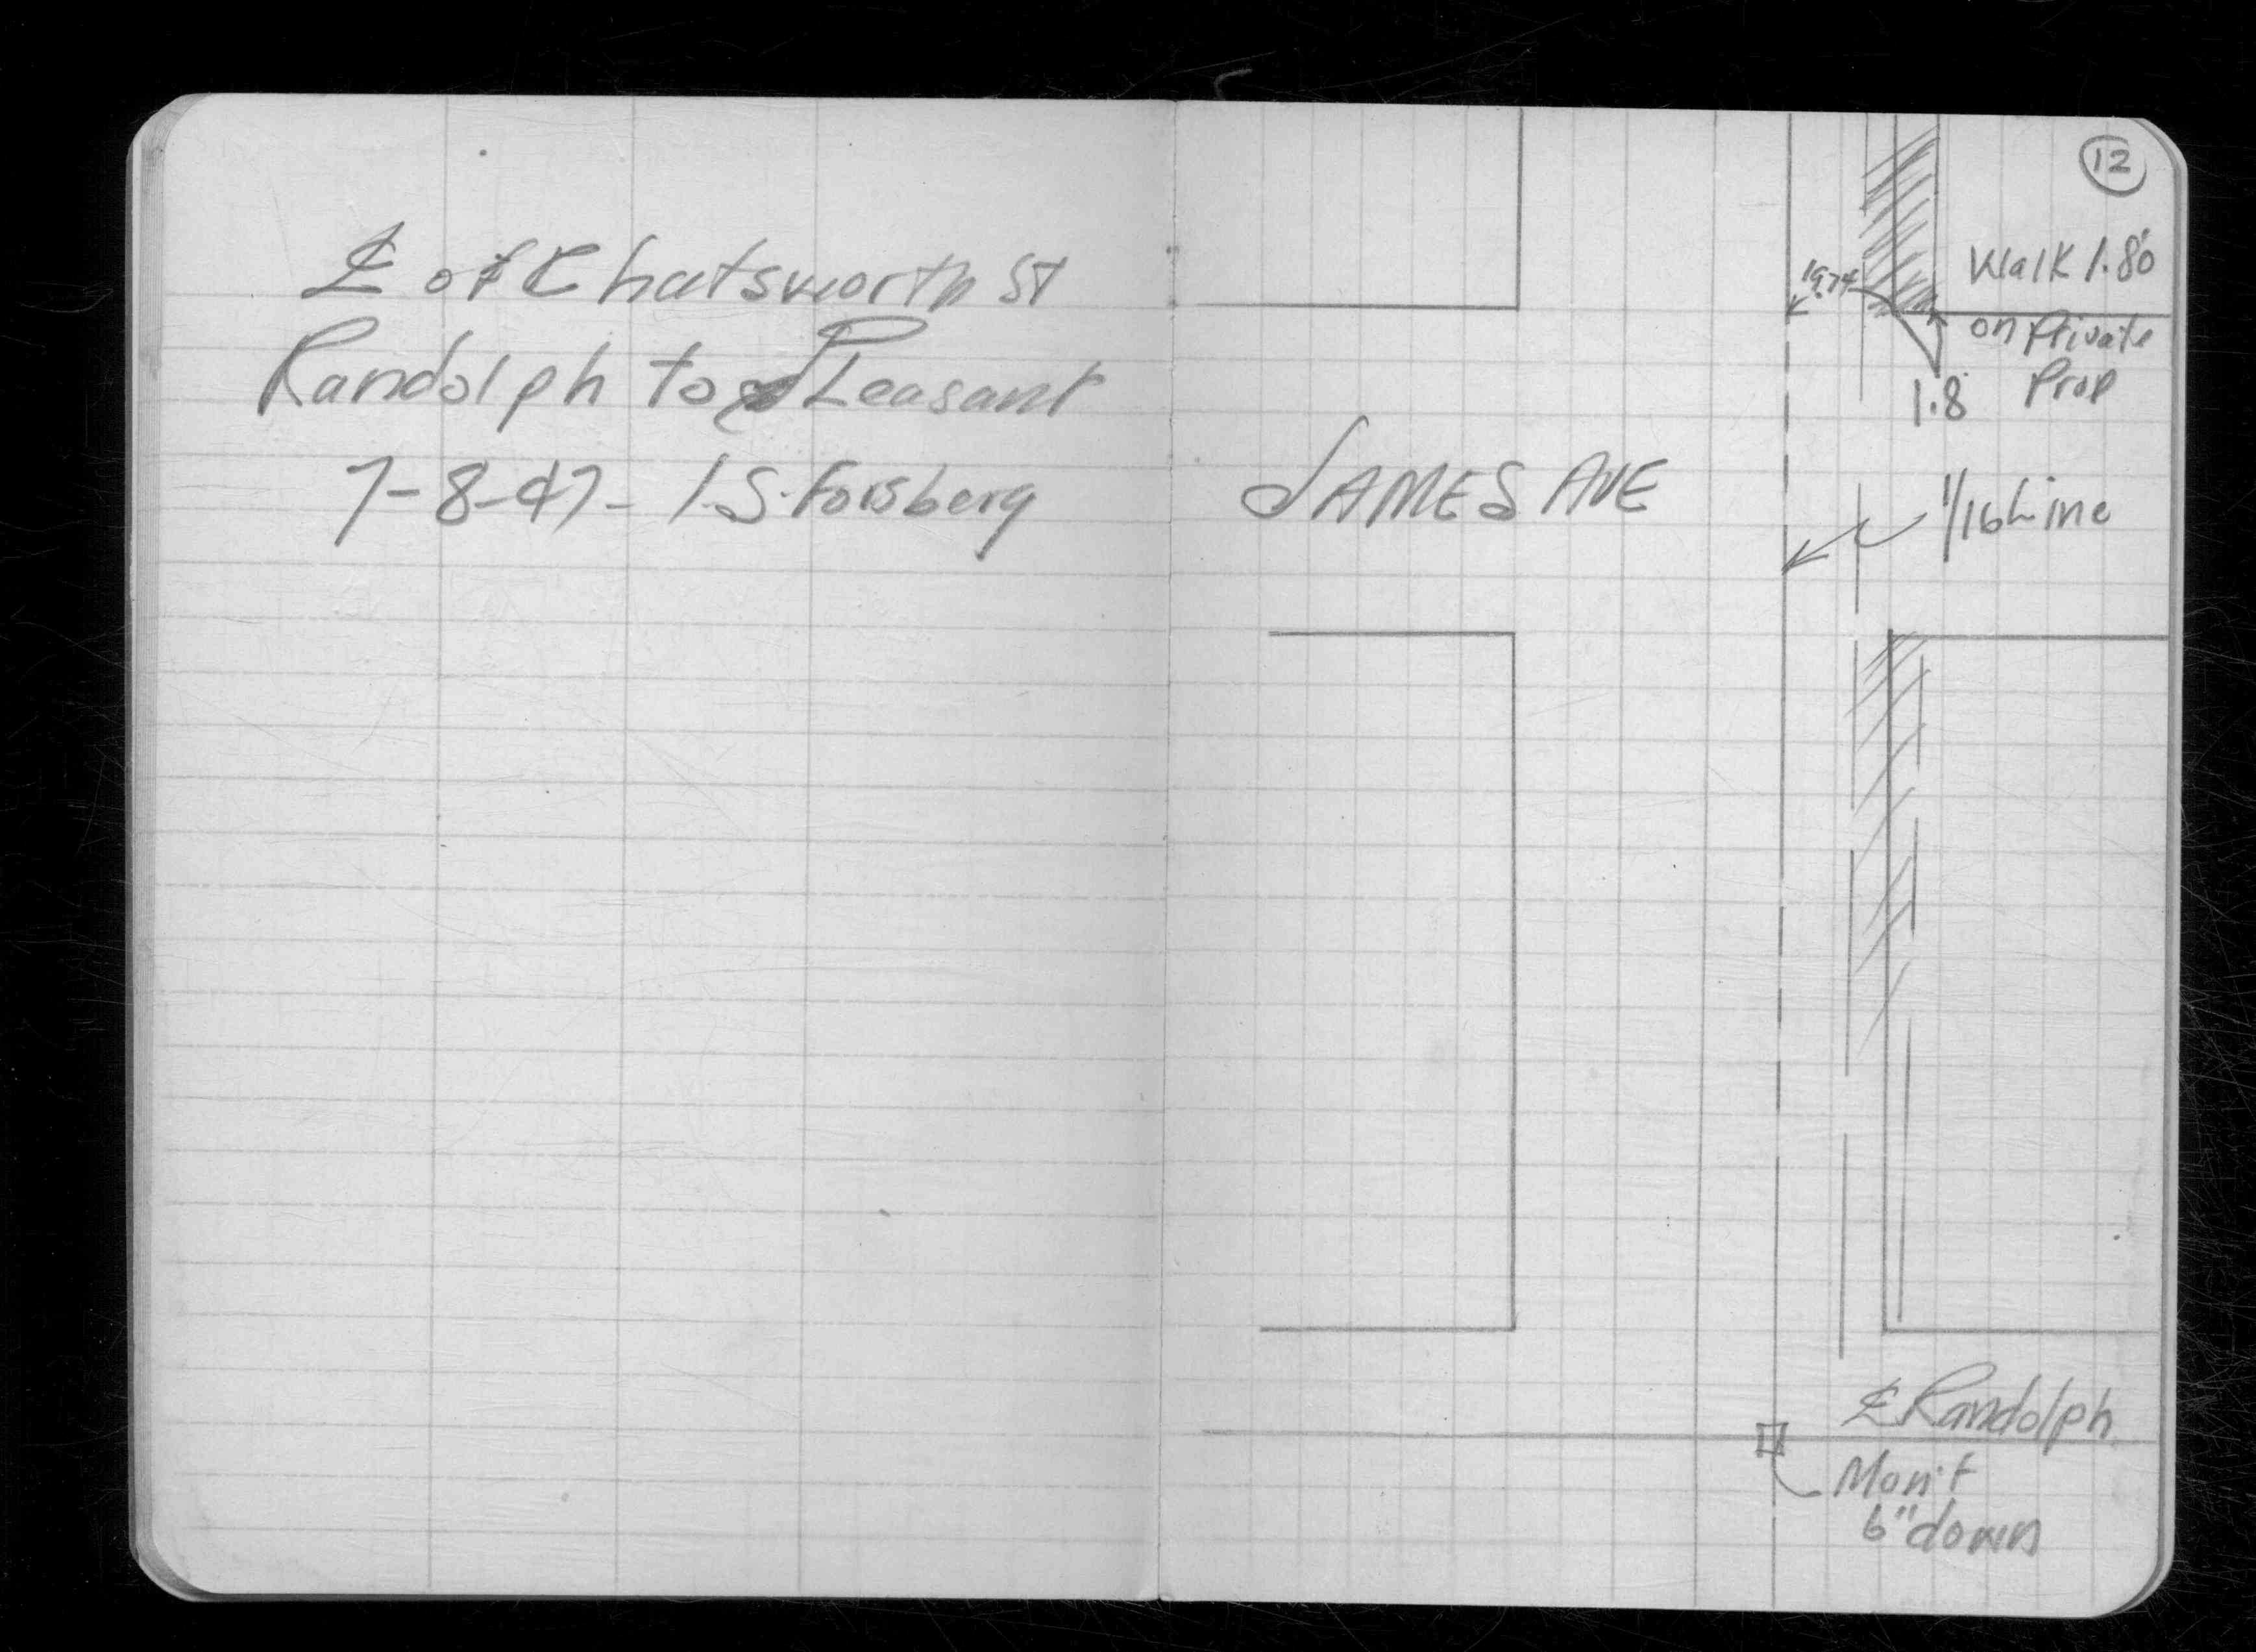 ℄ of Chatsworth St
Randolph to Pleasant
7-8-47- I.S. Forsberg
12
19.74
Walk 1.80
on Private
Prop
1.8
JAMES AVE
1/16 Line
℄ Randolph
Mon't
6" down